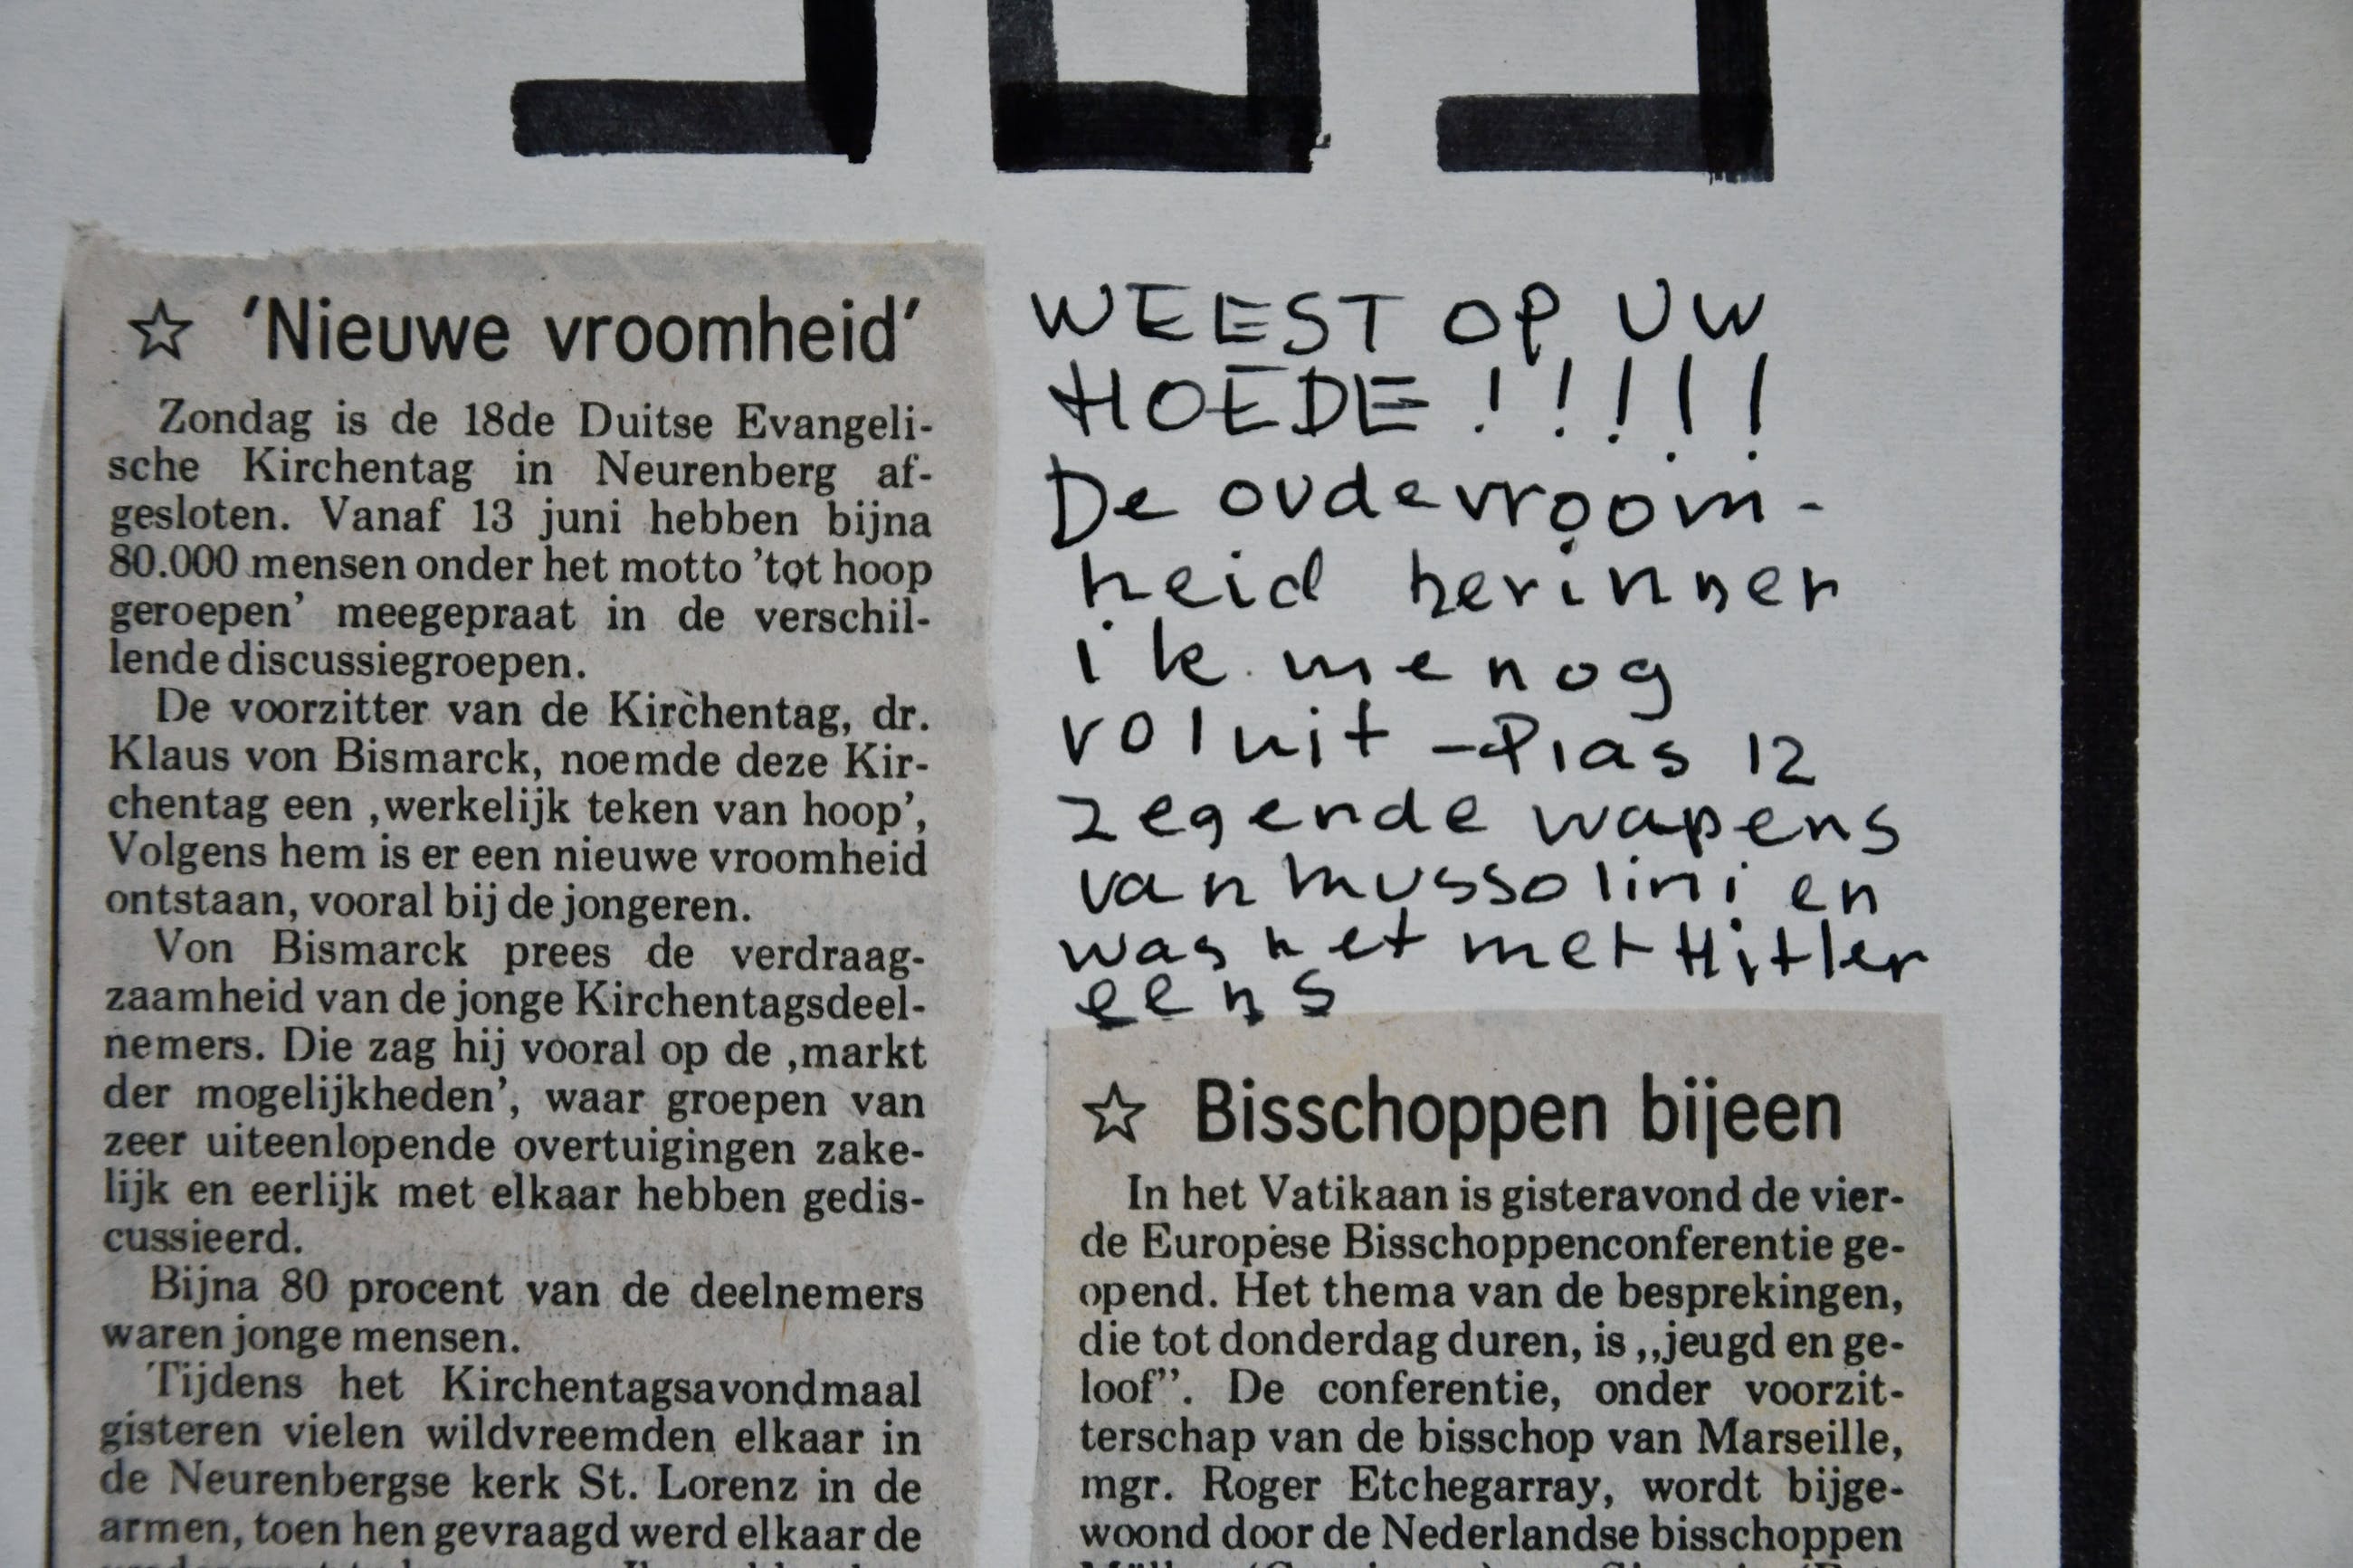 ☆ 'Nieuwe vroomheid'
Zondag is de 18de Duitse Evangeli-
sche Kirchentag in Neurenberg af-
gesloten. Vanaf 13 juni hebben bijna
80.000 mensen onder het motto 'tot hoop
geroepen' meegepraat in de verschil-
lende discussiegroepen.
De voorzitter van de Kirchentag, dr.
Klaus von Bismarck, noemde deze Kir-
chentag een ,werkelijk teken van hoop',
Volgens hem is er een nieuwe vroomheid
ontstaan, vooral bij de jongeren.
Von Bismarck prees de verdraag-
zaamheid van de jonge Kirchentagsdeel-
nemers. Die zag hij vooral op de ,markt
der mogelijkheden', waar groepen van
zeer uiteenlopende overtuigingen zake-
lijk en eerlijk met elkaar hebben gedis-
cussieerd.
Bijna 80 procent van de deelnemers
waren jonge mensen.
Tijdens het Kirchentagsavondmaal
gisteren vielen wildvreemden elkaar in
de Neurenbergse kerk St. Lorenz in de
armen, toen hen gevraagd werd elkaar de
WEEST OP UW
HOEDE !!!!!
De oude vroom-
heid herinner
ik me nog
voluit - Pias 12
zegende wapens
van mussolini en
was het met Hitler
eens
☆ Bisschoppen bijeen
In het Vatikaan is gisteravond de vier-
de Europese Bisschoppenconferentie ge-
opend. Het thema van de besprekingen,
die tot donderdag duren, is ,,jeugd en ge-
loof''. De conferentie, onder voorzit-
terschap van de bisschop van Marseille,
mgr. Roger Etchegarray, wordt bijge-
woond door de Nederlandse bisschoppen